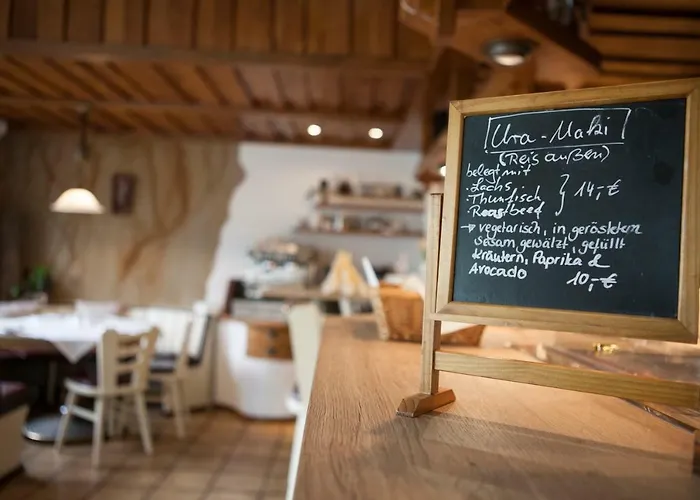 Ura-Maki
(Reis außen)
belegt mit
· Lachs
· Thunfisch } 14,-€
· Roastbeef
→ vegetarisch, in geröstetem
Sesam gewälzt, gefüllt
Kräutern, Paprika &
Avocado 10,-€